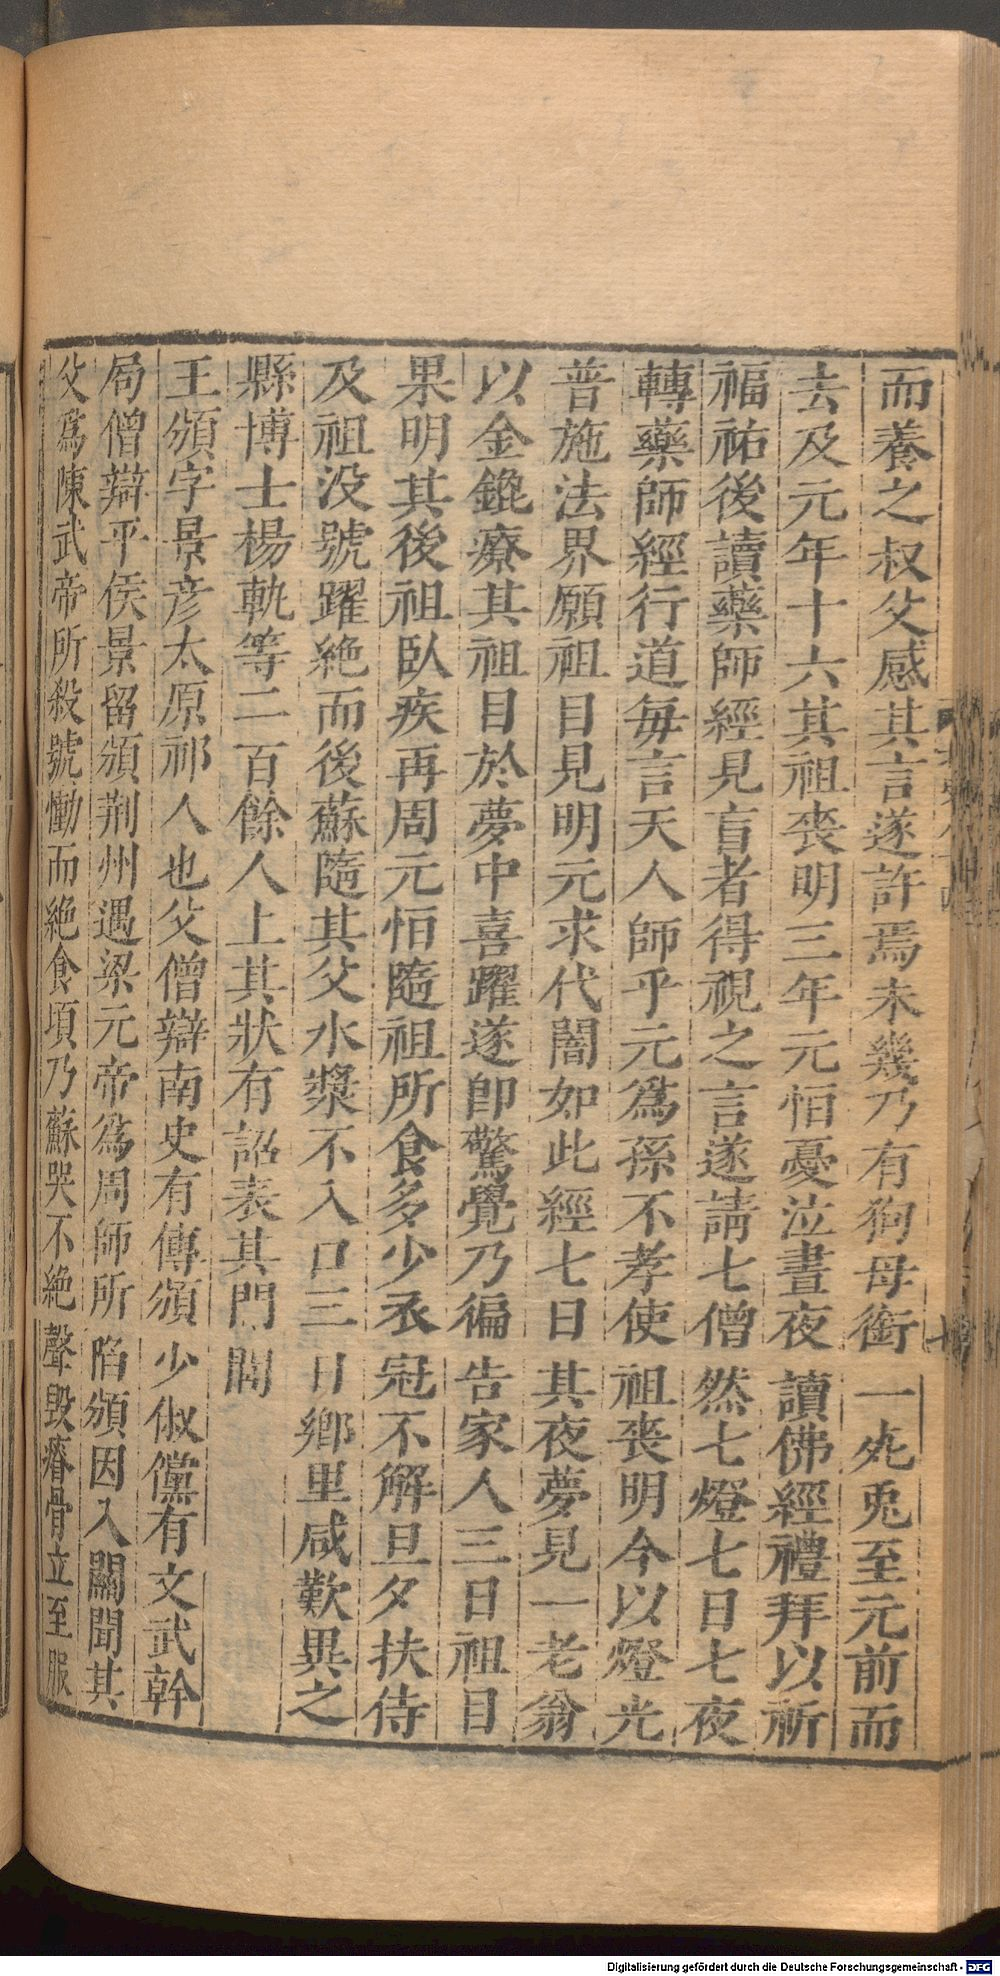 而養之叔父感其言遂許焉未幾乃有狗母銜一死兎至元前而
去及元年十六其祖喪明三年元恒憂泣晝夜讀佛經禮拜以祈
福祐後讀藥師經見盲者得視之言遂請七僧然七燈七日七夜
轉藥師經行道每言天人師乎元爲孫不孝使祖喪明今以燈光
普施法界願祖目見明元求代闇如此經七日其夜夢見一老翁
以金鎞療其祖目於夢中喜躍遂即驚覺乃徧告家人三日祖目
果明其後祖臥疾再周元恒隨祖所食多少衣冠不解旦夕扶侍
及祖没號躍絶而後蘇隨其父水漿不入口三日鄉里咸歎異之
縣博士楊軌等二百餘人上其狀有詔表其門閭
王頒字景彦太原祁人也父僧辯南史有傳頒少俶儻有文武幹
局僧辯平侯景留頒荆州遇梁元帝爲周師所陷頒因入關聞其
父爲陳武帝所殺號慟而絶食頃乃蘇哭不絶聲毁瘠骨立至服
Digitalisierung gefördert durch die Deutsche Forschungsgemeinschaft - DFG